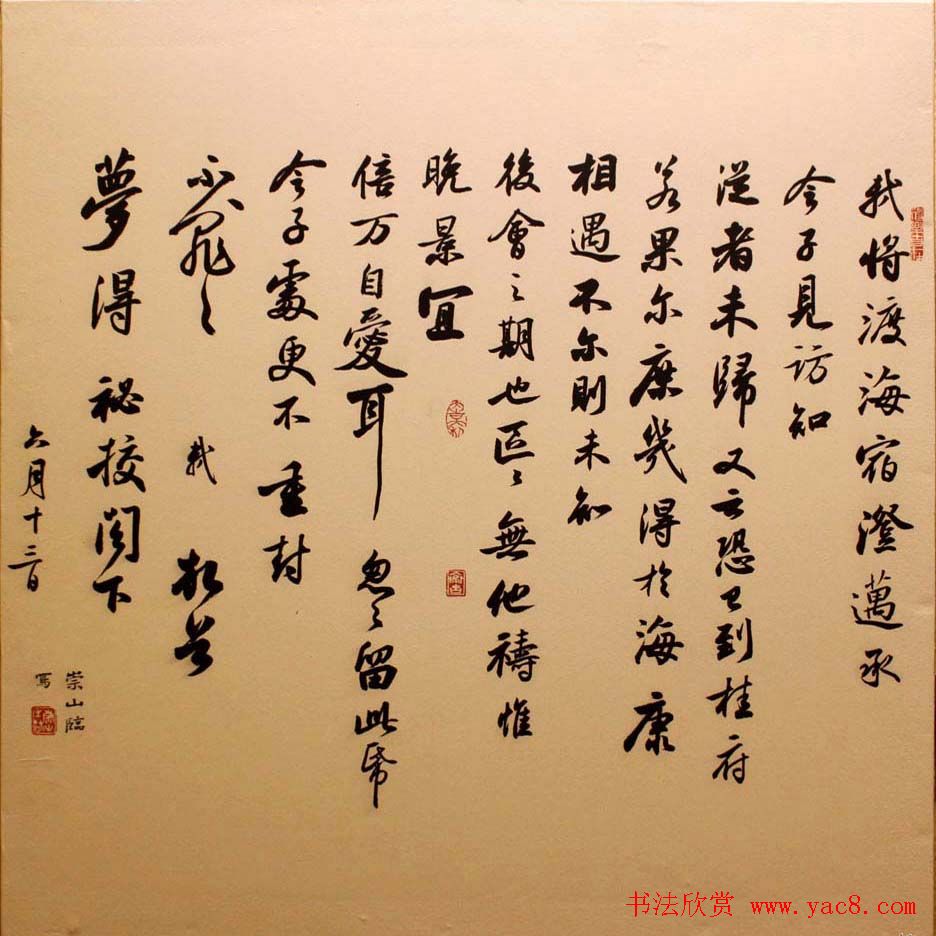 軾將渡海宿澄邁承
令子見訪知
從者未歸又云恐已到桂府
若果尔庶幾得於海康
相遇不尔則未知
後會之期也區區無他禱惟
晚景宜
倍万自愛耳忽忽留此帋
令子處更不重封
不罪不罪 軾 頓首
夢得祕校閣下
六月十三日
崇山臨
写
书法欣赏 www.yac8.com